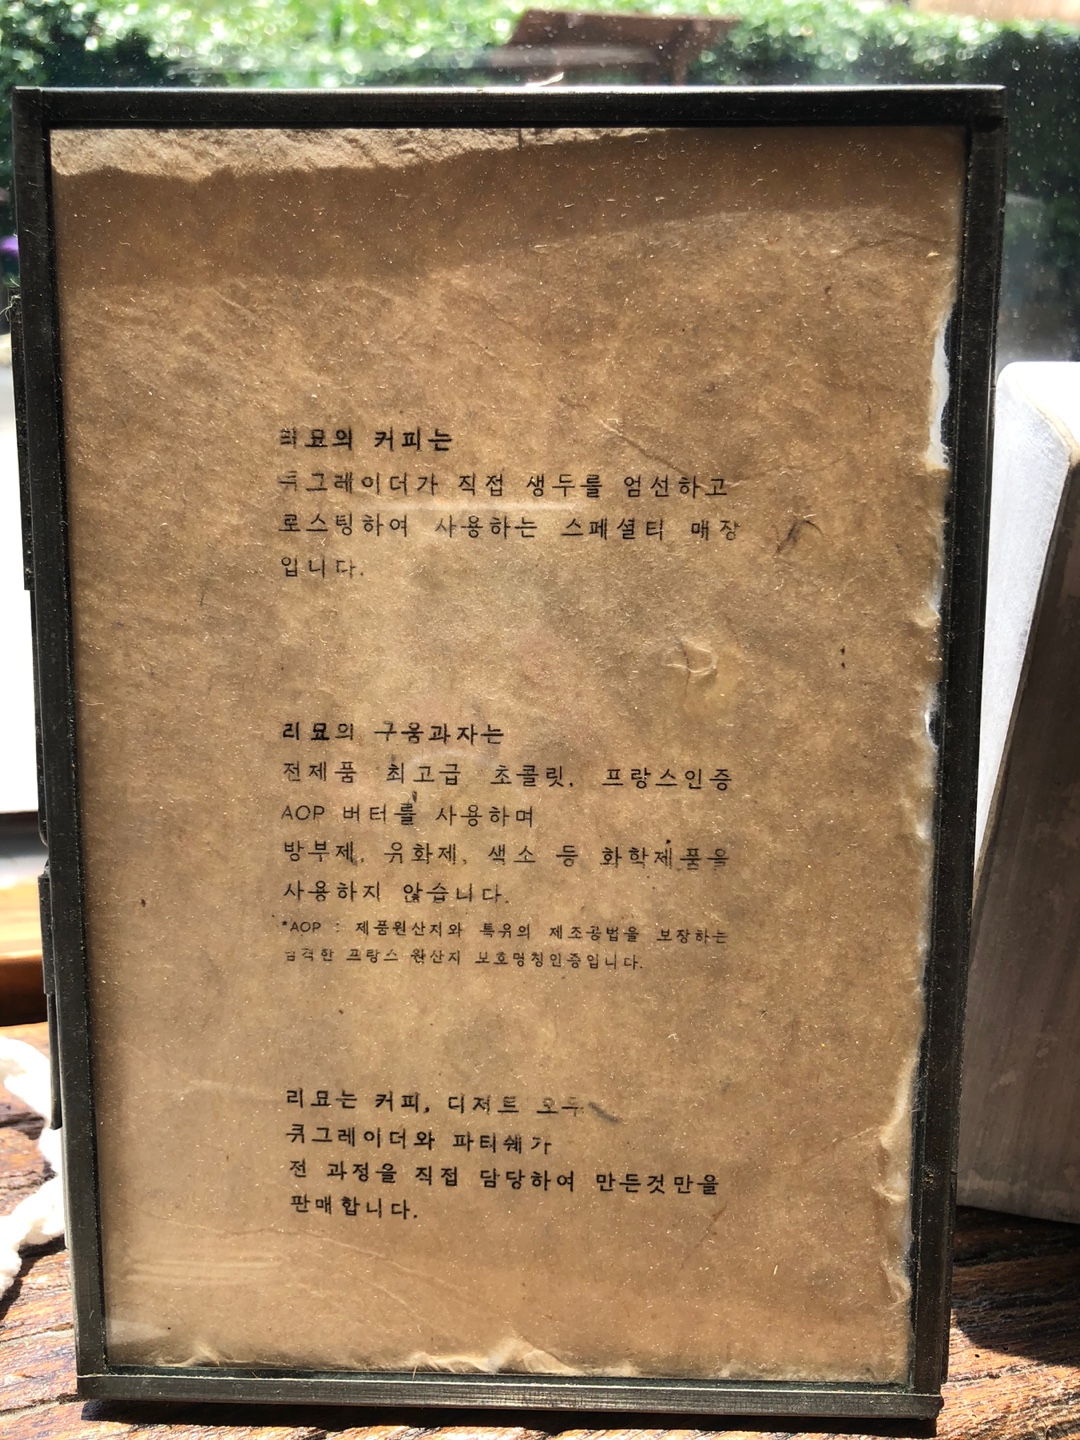 리묘의 커피는
큐그레이더가 직접 생두를 엄선하고
로스팅하여 사용하는 스페셜티 매장
입니다.
리묘의 구움과자는
전제품 최고급 초콜릿, 프랑스인증
AOP 버터를 사용하며
방부제, 유화제, 색소 등 화학제품을
사용하지 않습니다.
*AOP : 제품원산지와 특유의 제조공법을 보장하는
엄격한 프랑스 원산지 보호명칭인증입니다.
리묘는 커피, 디저트 모두
큐그레이더와 파티쉐가
전 과정을 직접 담당하여 만든것만을
판매합니다.